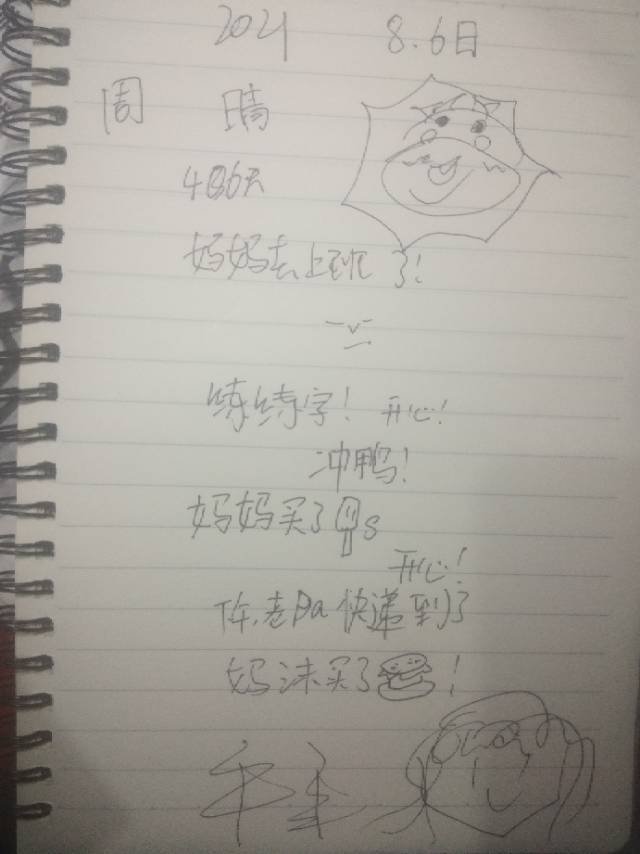 2021 8.6日
周 晴
486天
妈妈去上班了!
练练字! 开心!
冲鸭!
妈妈买了 s
开心!
陈老Da快递到了
妈沫买了 !